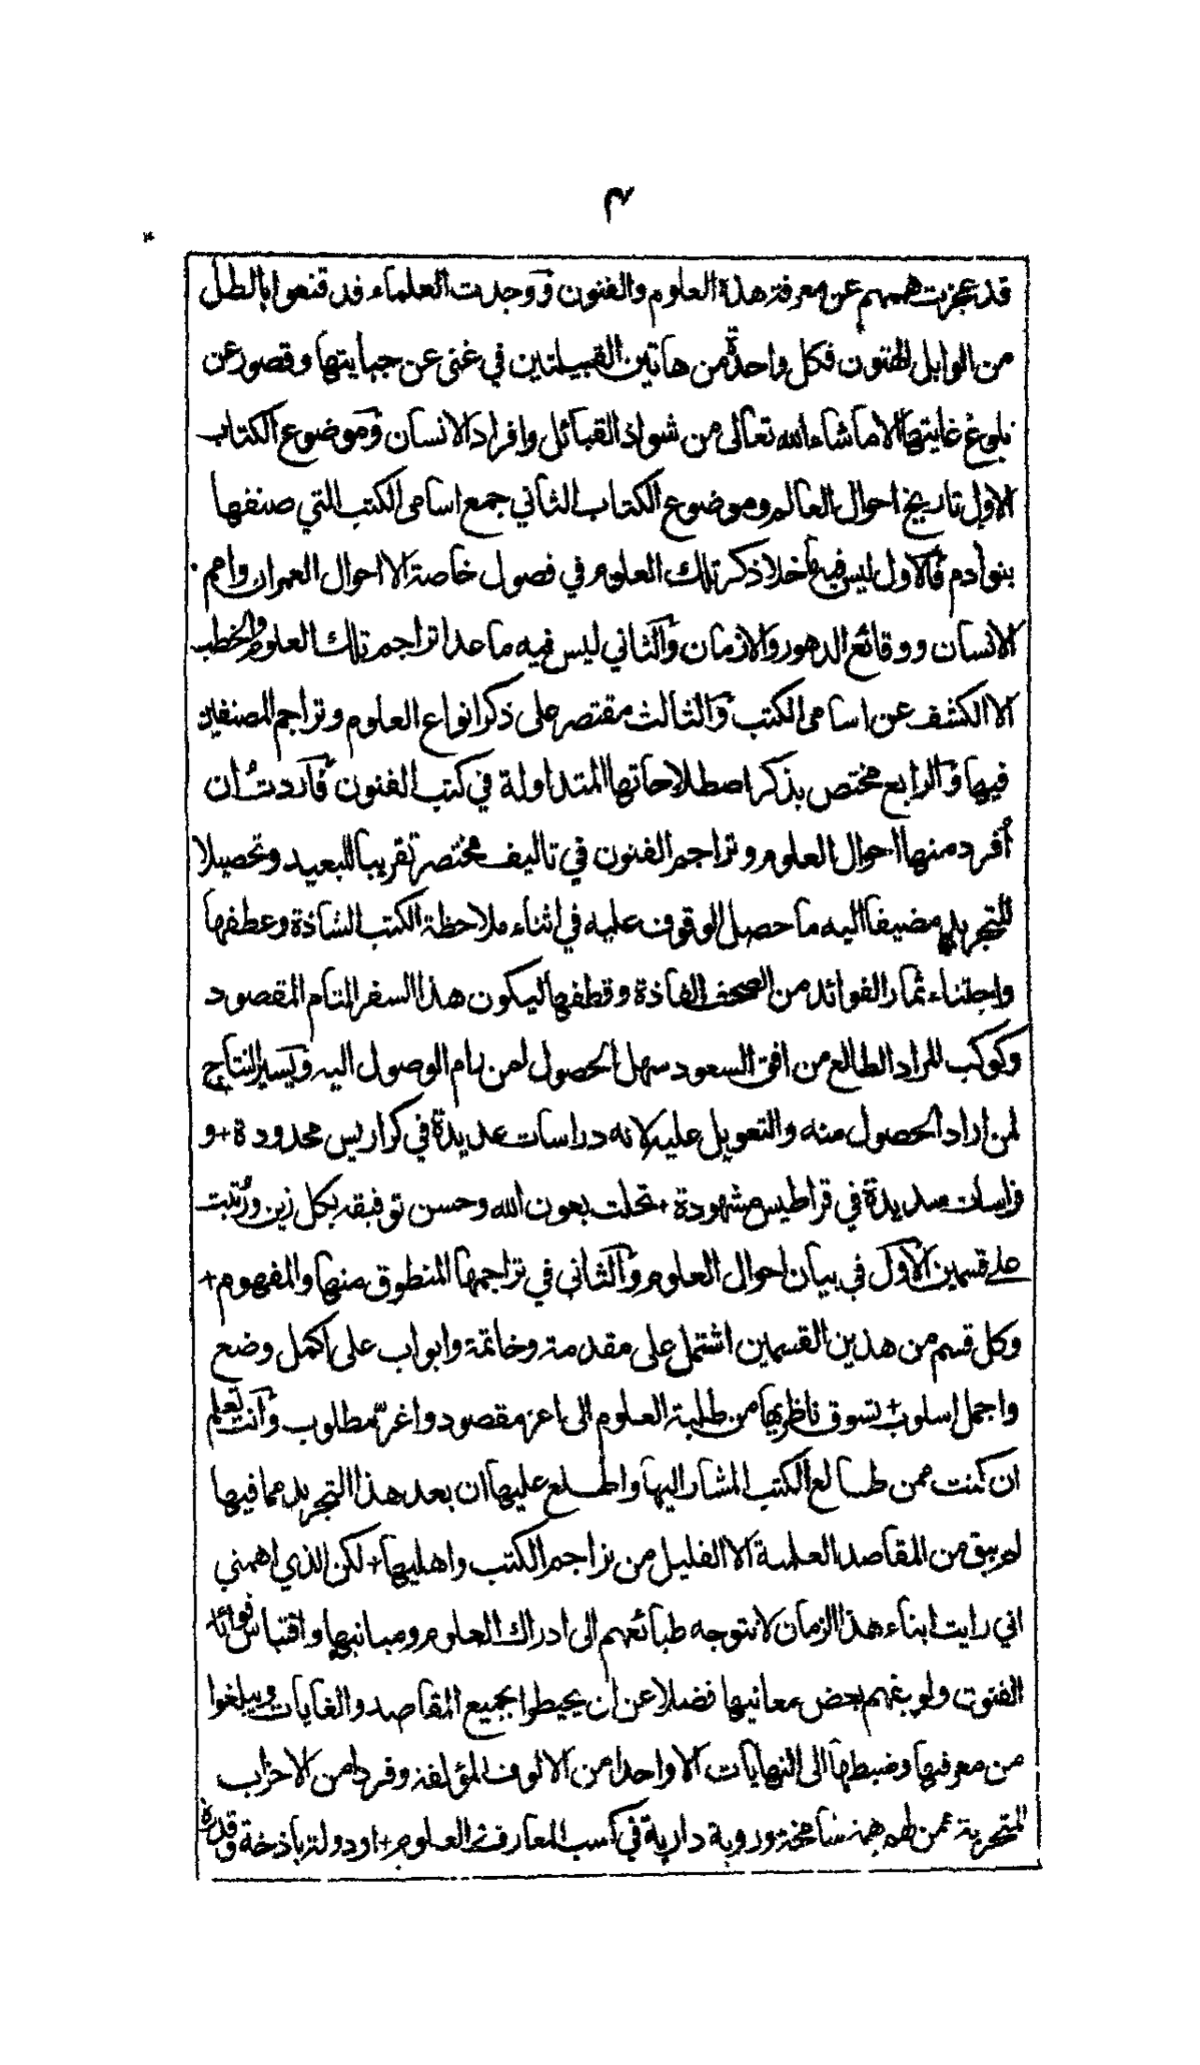 ٣
قد عجزت هممهم عن معرفة هذه العلوم والفنون ووجدت العلماء قد قنعوا بالطل
من الوابل الهتون فكل واحدة من هاتين القبيلتين في غنى عن جبايتها وقصور عن
بلوغ غايتها الا ما شاء الله تعالى من شواذ القبائل وافراد الانسان وموضوع الكتاب
الاول تاريخ احوال العالم وموضوع الكتاب الثاني جمع اسامي الكتب التي صنفها
بنو آدم فالاول ليس فيها خلا ذكر تلك العلوم في فصول خاصة الا احوال العمران وامم
الانسان ووقائع الدهور والازمان والثاني ليس فيه ما عدا تراجم تلك العلوم والخطب
الا الكشف عن اسامي الكتب والثالث مقتصر على ذكر انواع العلوم وتراجم المصنفين
فيها والرابع مختص بذكر اصطلاحاتها المتداولة في كتب الفنون فاردت أن
أفرد منها احوال العلوم وتراجم الفنون في تاليف مختصر تقريبا للبعيد وتحصيلا
للتجريد مضيفا اليه ما حصل الوقوف عليه في اثناء ملاحظة الكتب الشاذة وعطفها
واجتناء ثمار الفوائد من الصحف الفاذة وقطفها ليكون هذا السفر المنام المقصود
وكوكب المراد الطالع من افق السعود سهل الحصول لمن رام الوصول اليه ويسير النتاج
لمن اراد الحصول منه والتعويل عليه لانه دراسات عديدة في كراريس محدودة + و
فراسات سديدة في قراطيس مشهودة + تحلت بعون الله وحسن توفيقه بكل زين ورتبت
على قسمين الاول في بيان احوال العلوم والثاني في تراجمها المنطوق منها والمفهوم +
وكل قسم من هذين القسمين اشتمل على مقدمة وخاتمة وابواب على اكمل وضع
واجمل اسلوب + تسوق ناظريها من طلبة العلوم الى اعز مقصود واغر مطلوب وانت تعلم
ان كنت ممن طالع الكتب المشار اليها واطلع عليها ان بعد هذا التجريد مما فيها
لم يبق من المقاصد العلمية الا القليل من تراجم الكتب واهليها + لكن الذي اهمني
اني رايت ابناء هذا الزمان لا تتوجه طبائعهم الى ادراك العلوم ومبانيها واقتباس فوائد
الفنون ولو بفهم بعض معانيها فضلا عن ان يحيطوا بجميع المقاصد والغايات ويبلغوا
من معرفتها وضبطها الى النهايات الا واحدا من الالوف المؤلفة وفردا من الاحزاب
المتحزبة ممن له همة شامخة وروية دارية في كسب المعارف والعلوم + او دولة باذخة وقدرة